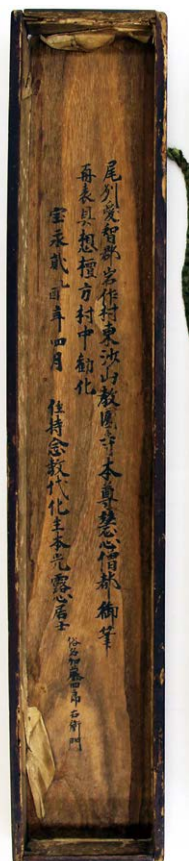 尾州愛智郡岩作村東沙山教圓寺本尊慧心僧都御筆
再表具想檀方村中勧化
宝永貳乙酉年四月 住持念教代化主本光露心居士
俗名加藤四郎右衛門